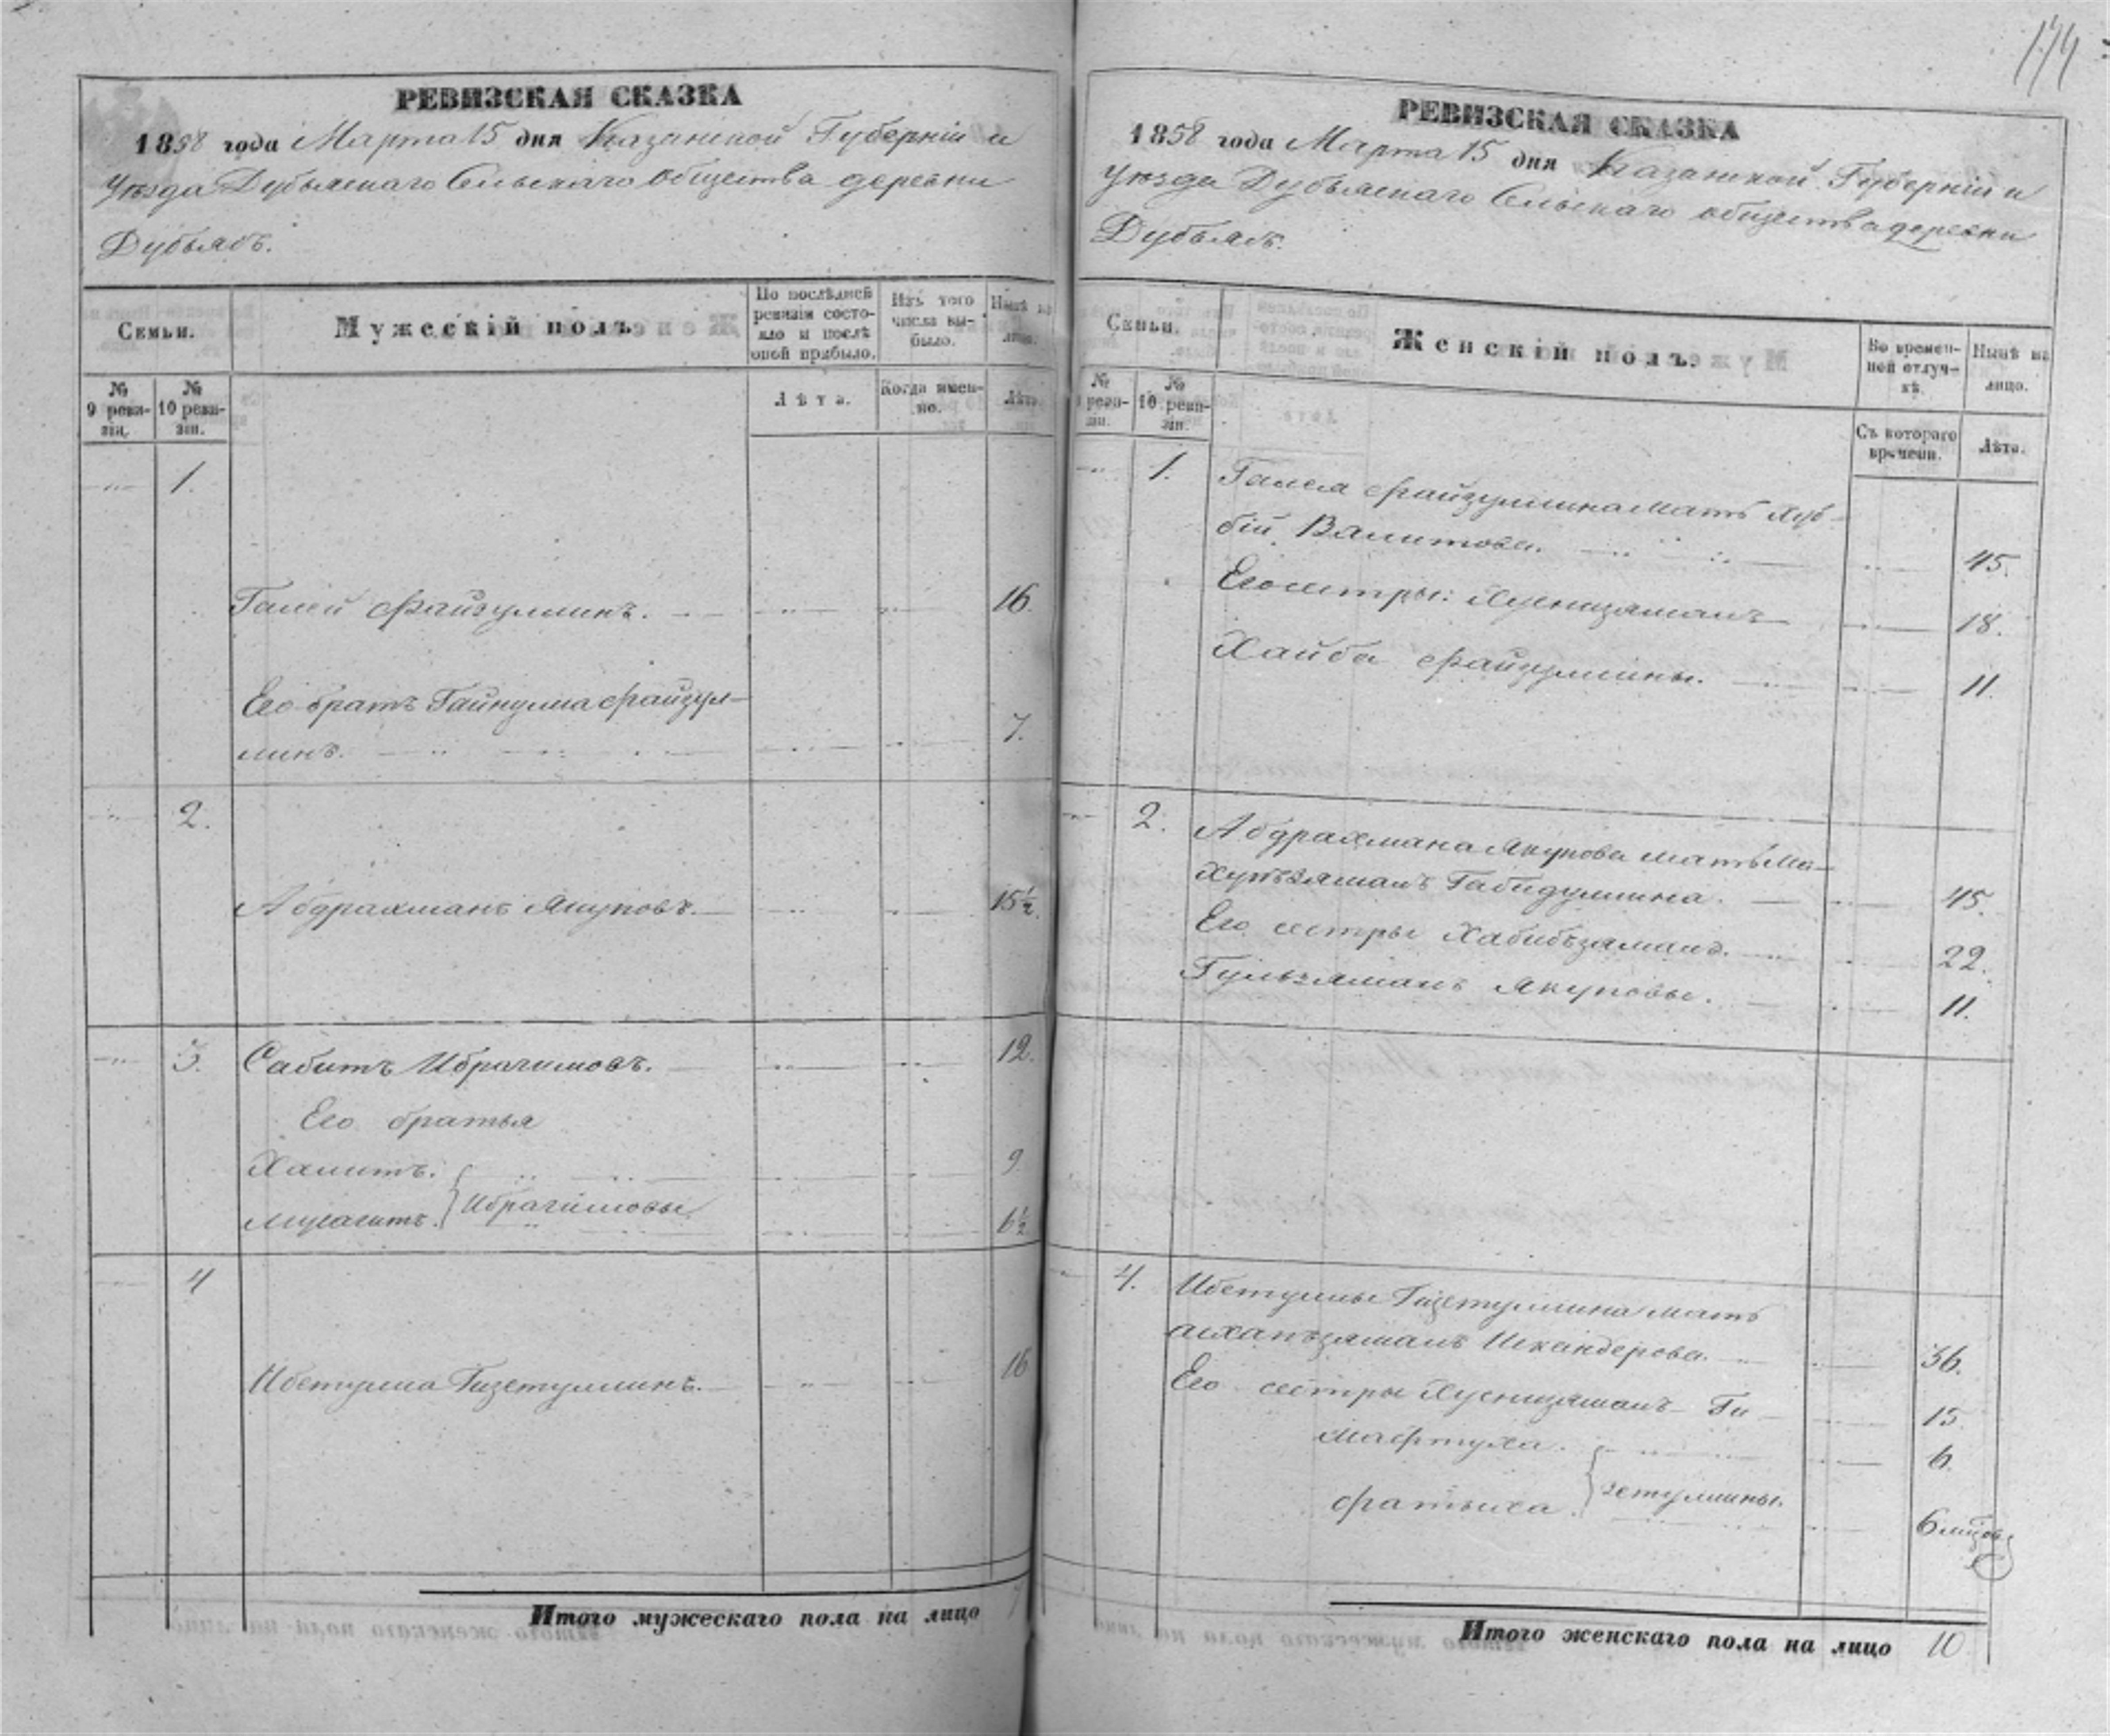 144
РЕВИЗСКАЯ СКАЗКА
1858 года Марта 15 дня Казанской Губерніи и
Уѣзда Дубьязскаго Сельскаго общества деревни
Дубьязъ.
Семьи.
Мужескій полъ.
По послѣдней ревизіи состояло и послѣ оной прибыло.
Изъ того числа выбыло.
Нынѣ на лицо.
№ 9 ревизіи.
№ 10 ревизіи.
Лѣта.
Когда именно.
Лѣта.
1.
Галей Файзуллинъ. 16.
Его братъ Гайнулла Файзул-
линъ. 7.
2.
Абдрахманъ Якуповъ. 15½.
3. Сабитъ Ибрагимовъ. 12.
Его братья
Халитъ. 9
Мусагитъ. } Ибрагимовы 6½
4
Ибетулла Гизетуллинъ. 16
Итого мужескаго пола на лицо 7
РЕВИЗСКАЯ СКАЗКА
1858 года Марта 15 дня Казанской Губерніи и
Уѣзда Дубьязскаго Сельскаго общества деревни
Дубьязъ.
Семьи.
Женскій полъ.
Во временной отлучкѣ.
Нынѣ на лицо.
№ 9 ревизіи.
№ 10 ревизіи.
Съ котораго времени.
Лѣта.
1. Галея Файзуллина мать Хуб-
бій Валитова. 45.
Его сестры: Хуснизямалъ 18.
Хайба Файзуллины. 11.
2. Абдрахмана Якупова мать Ма-
Габидуллина. 45.
Его сестры Хабибзямалъ. 22.
Гульзямалъ Якуповы. 11.
4. Ибетуллы Гизетуллина мать
Искандерова. 36.
Его сестры Хуснизямалъ Ги- 15.
Мафтуха. 6.
Фатыха. } зетуллины. 6 мѣсяц.
Итого женскаго пола на лицо 10